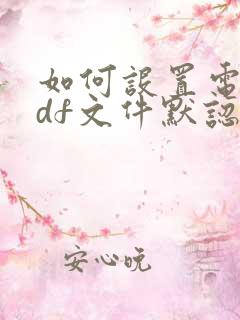 如何設置電
df文件默認
安心晚